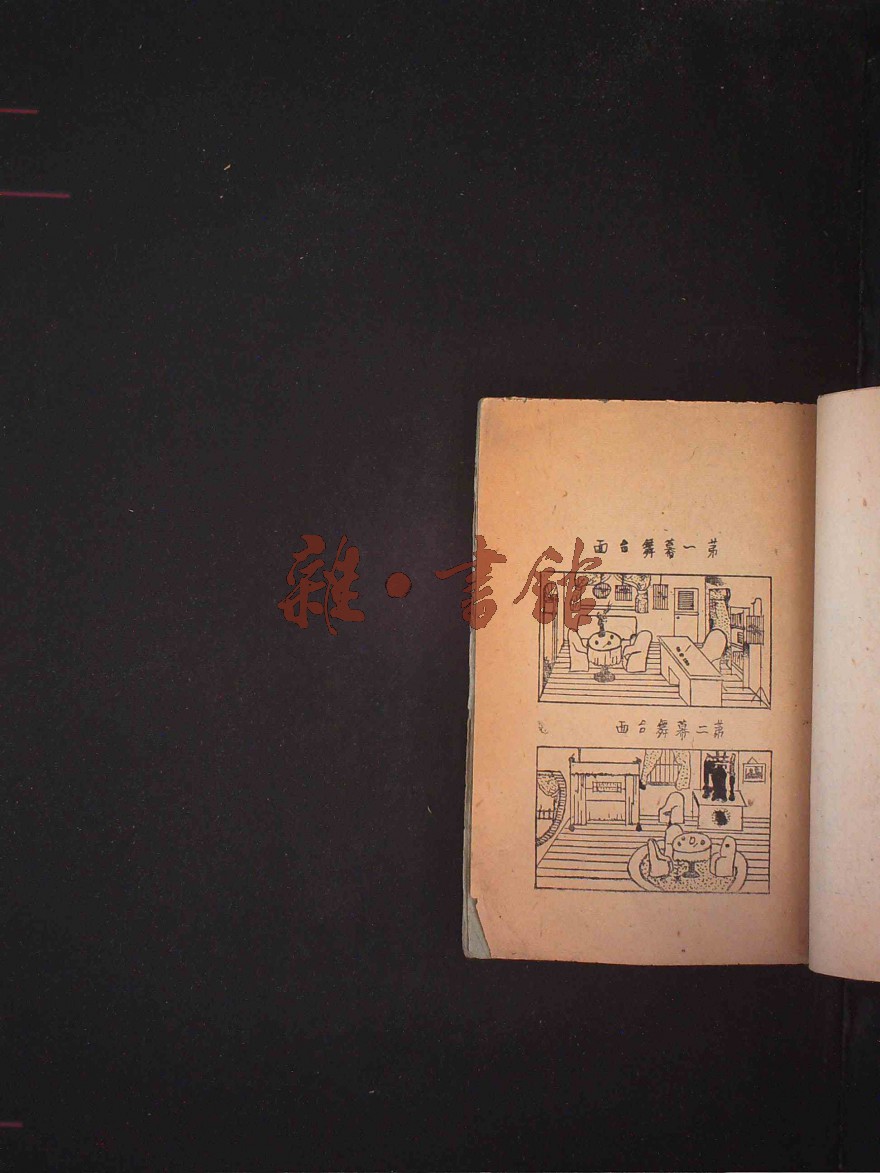 第一幕舞台面
雜·書館
第二幕舞台面